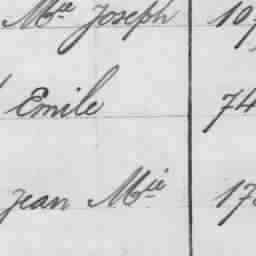 Mie Joseph
Emile 74
Jean Mie